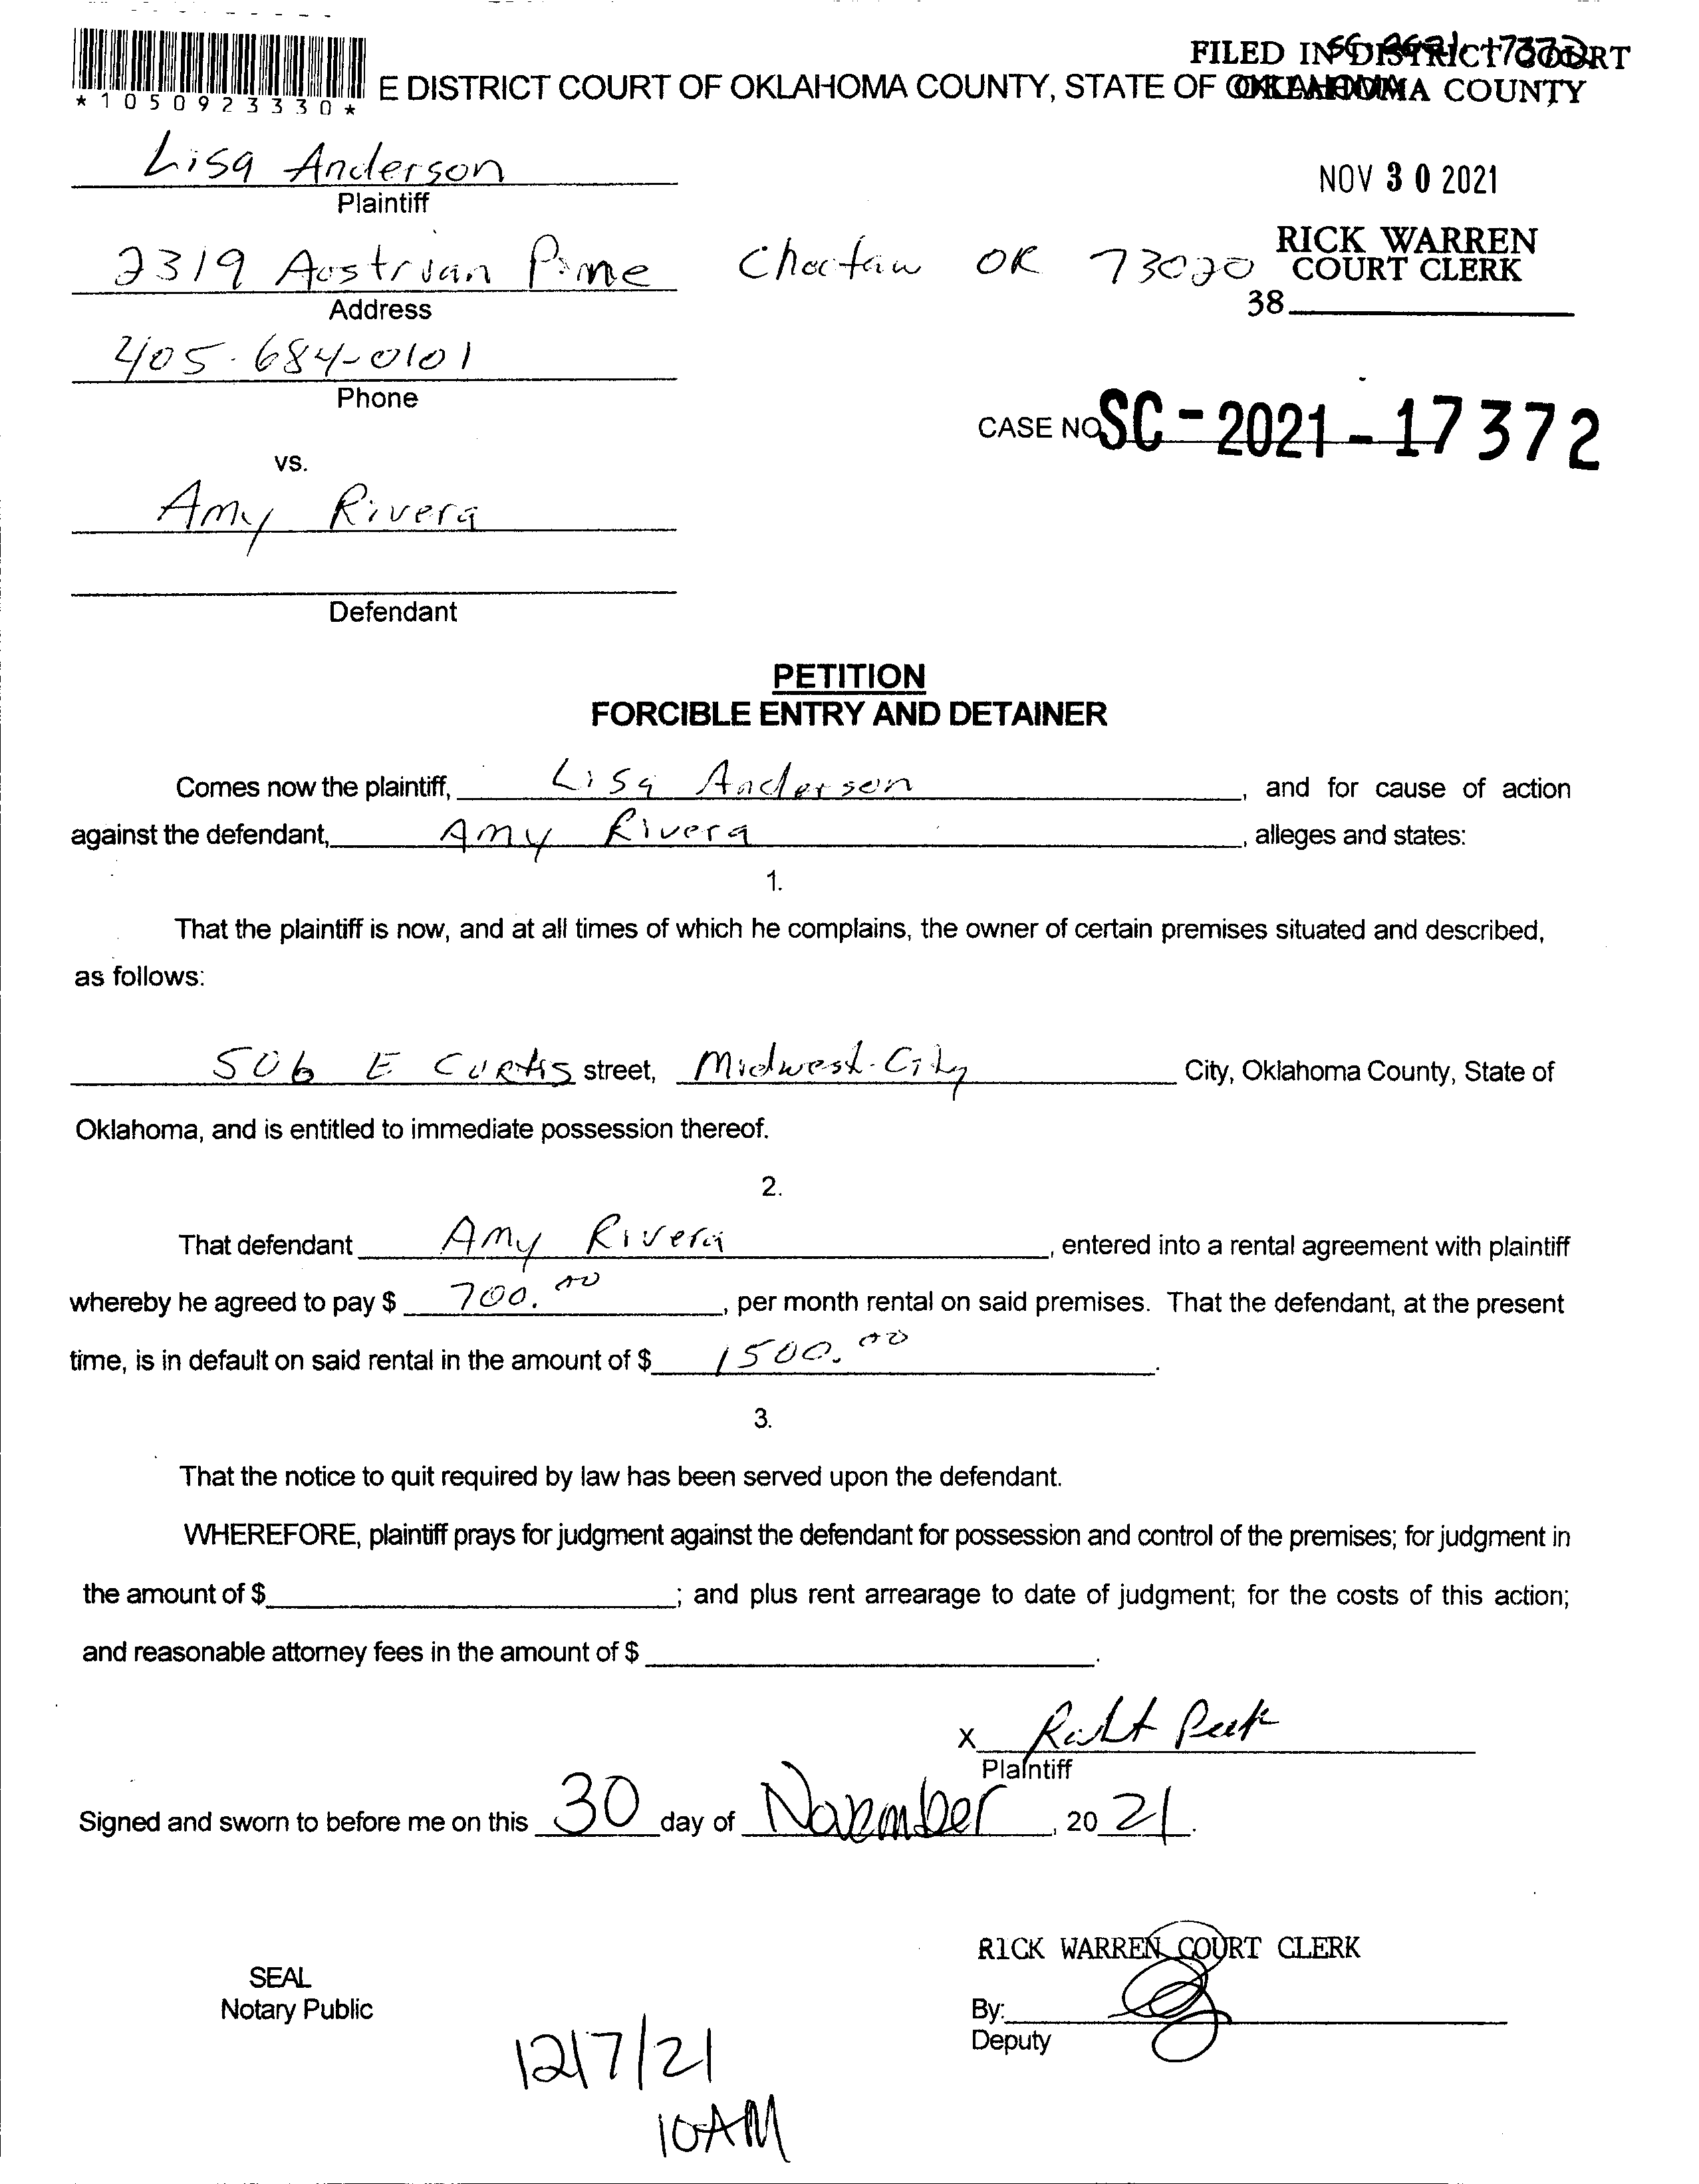 FILED IN DISTRICT COURT
*1050923330* E DISTRICT COURT OF OKLAHOMA COUNTY, STATE OF OKLAHOMA COUNTY
Lisa Anderson
Plaintiff
NOV 30 2021
2319 Austrian Pine Choctaw OK 73020
RICK WARREN
COURT CLERK
Address
38
405-684-0101
Phone
CASE NO. SC-2021-17372
vs.
Amy Rivera
Defendant
PETITION
FORCIBLE ENTRY AND DETAINER
Comes now the plaintiff, Lisa Anderson, and for cause of action
against the defendant, Amy Rivera, alleges and states:
1.
That the plaintiff is now, and at all times of which he complains, the owner of certain premises situated and described,
as follows:
506 E Curtis street, Midwest City City, Oklahoma County, State of
Oklahoma, and is entitled to immediate possession thereof.
2.
That defendant Amy Rivera, entered into a rental agreement with plaintiff
whereby he agreed to pay $ 700.00, per month rental on said premises. That the defendant, at the present
time, is in default on said rental in the amount of $ 1500.00.
3.
That the notice to quit required by law has been served upon the defendant.
WHEREFORE, plaintiff prays for judgment against the defendant for possession and control of the premises; for judgment in
the amount of $ ; and plus rent arrearage to date of judgment; for the costs of this action;
and reasonable attorney fees in the amount of $ .
X
Plaintiff
Signed and sworn to before me on this 30 day of November, 2021.
RICK WARREN COURT CLERK
SEAL
Notary Public
By:
Deputy
12/7/21
10AM